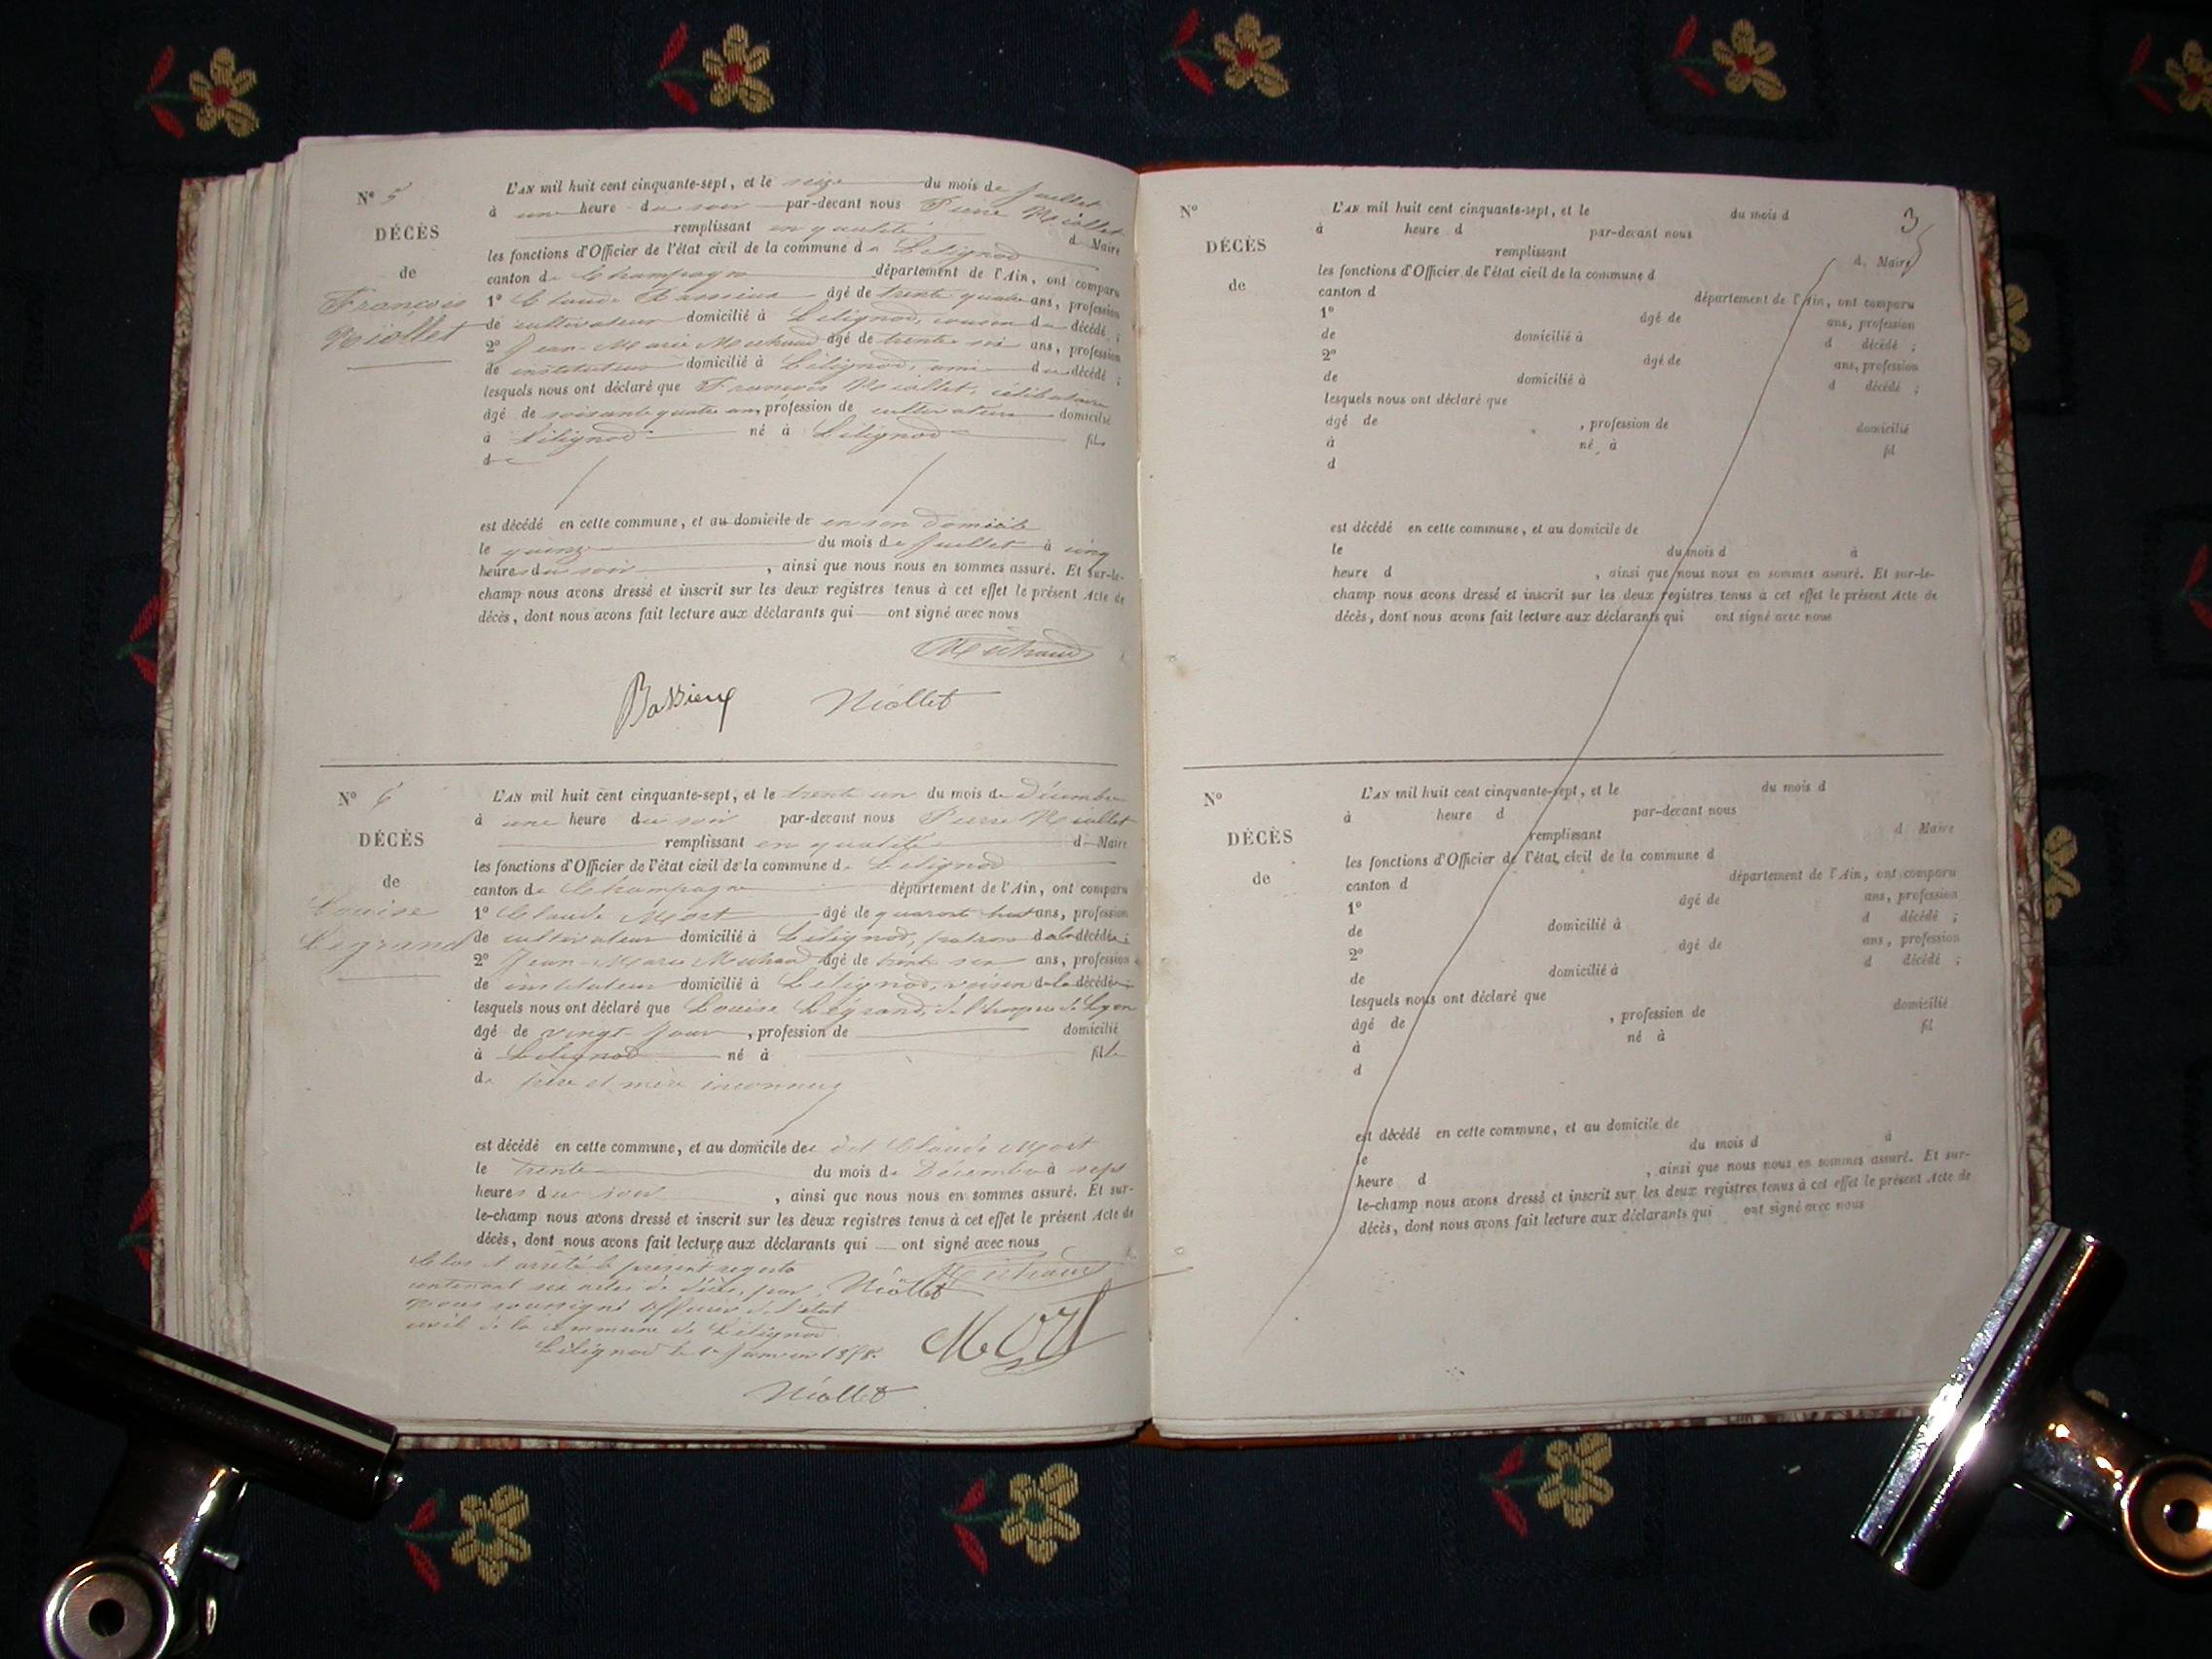 N° 5
DÉCÈS
de
François
Niollet
L'AN mil huit cent cinquante-sept, et le seize du mois de juillet
à une heure du soir par-devant nous Pierre Niollet
remplissant en qualité d Maire
les fonctions d'Officier de l'état civil de la commune de Lilignod
canton de Champagne département de l'Ain, ont comparu
1° Claude Bassieux âgé de trente quatre ans, profession
de cultivateur domicilié à Lilignod, cousin du décédé ;
2° Jean-Marie Michaud âgé de trente six ans, profession
de instituteur domicilié à Lilignod, ami du décédé ;
lesquels nous ont déclaré que François Niollet, célibataire
âgé de soixante quatre ans, profession de cultivateur domicilié
à Lilignod né à Lilignod fils
de
est décédé en cette commune, et au domicile de en son domicile
le quinze du mois de juillet à cinq
heures du soir, ainsi que nous nous en sommes assuré. Et sur-le-
champ nous avons dressé et inscrit sur les deux registres tenus à cet effet le présent Acte de
décès, dont nous avons fait lecture aux déclarants qui ont signé avec nous
Michaud
Bassieux Niollet
N° 6
DÉCÈS
de
Louise
Legrand
L'AN mil huit cent cinquante-sept, et le trente un du mois de Décembre
à une heure du soir par-devant nous Pierre Niollet
remplissant en qualité d Maire
les fonctions d'Officier de l'état civil de la commune de Lilignod
canton de Champagne département de l'Ain, ont comparu
1° Claude Mort âgé de quarante huit ans, profession
de cultivateur domicilié à Lilignod, patron de la décédée ;
2° Jean-Marie Michaud âgé de trente six ans, profession
de instituteur domicilié à Lilignod, voisin de la décédée
lesquels nous ont déclaré que Louise Légrand, de l'hospice de Lyon
âgé de vingt jours, profession de domicilié
à Lilignod né à fille
de père et mère inconnus
est décédé en cette commune, et au domicile de dit Claude Mort
le trente du mois de Décembre à sept
heures du soir, ainsi que nous nous en sommes assuré. Et sur-
le-champ nous avons dressé et inscrit sur les deux registres tenus à cet effet le présent Acte de
décès, dont nous avons fait lecture aux déclarants qui ont signé avec nous
Clos et arrêté le présent registre
contenant six actes de décès, par Niollet Michaud
nous soussigné officier de l'état
civil de la commune de Lilignod
Lilignod le 1er Janvier 1858. Mort
Niollet
3
N°
DÉCÈS
de
L'AN mil huit cent cinquante-sept, et le du mois d
à heure d par-devant nous
remplissant d Maire
les fonctions d'Officier de l'état civil de la commune d
canton d département de l'Ain, ont comparu
1° âgé de ans, profession
de domicilié à d décédé ;
2° âgé de ans, profession
de domicilié à d décédé ;
lesquels nous ont déclaré que
âgé de , profession de domicilié
à né à fil
d
est décédé en cette commune, et au domicile de
le du mois d à
heure d , ainsi que nous nous en sommes assuré. Et sur-le-
champ nous avons dressé et inscrit sur les deux registres tenus à cet effet le présent Acte de
décès, dont nous avons fait lecture aux déclarants qui ont signé avec nous
N°
DÉCÈS
de
L'AN mil huit cent cinquante-sept, et le du mois d
à heure d par-devant nous
remplissant d Maire
les fonctions d'Officier de l'état civil de la commune d
canton d département de l'Ain, ont comparu
1° âgé de ans, profession
de domicilié à d décédé ;
2° âgé de ans, profession
de domicilié à d décédé ;
lesquels nous ont déclaré que
âgé de , profession de domicilié
à né à fil
d
est décédé en cette commune, et au domicile de
le du mois d à
heure d , ainsi que nous nous en sommes assuré. Et sur-
le-champ nous avons dressé et inscrit sur les deux registres tenus à cet effet le présent Acte de
décès, dont nous avons fait lecture aux déclarants qui ont signé avec nous